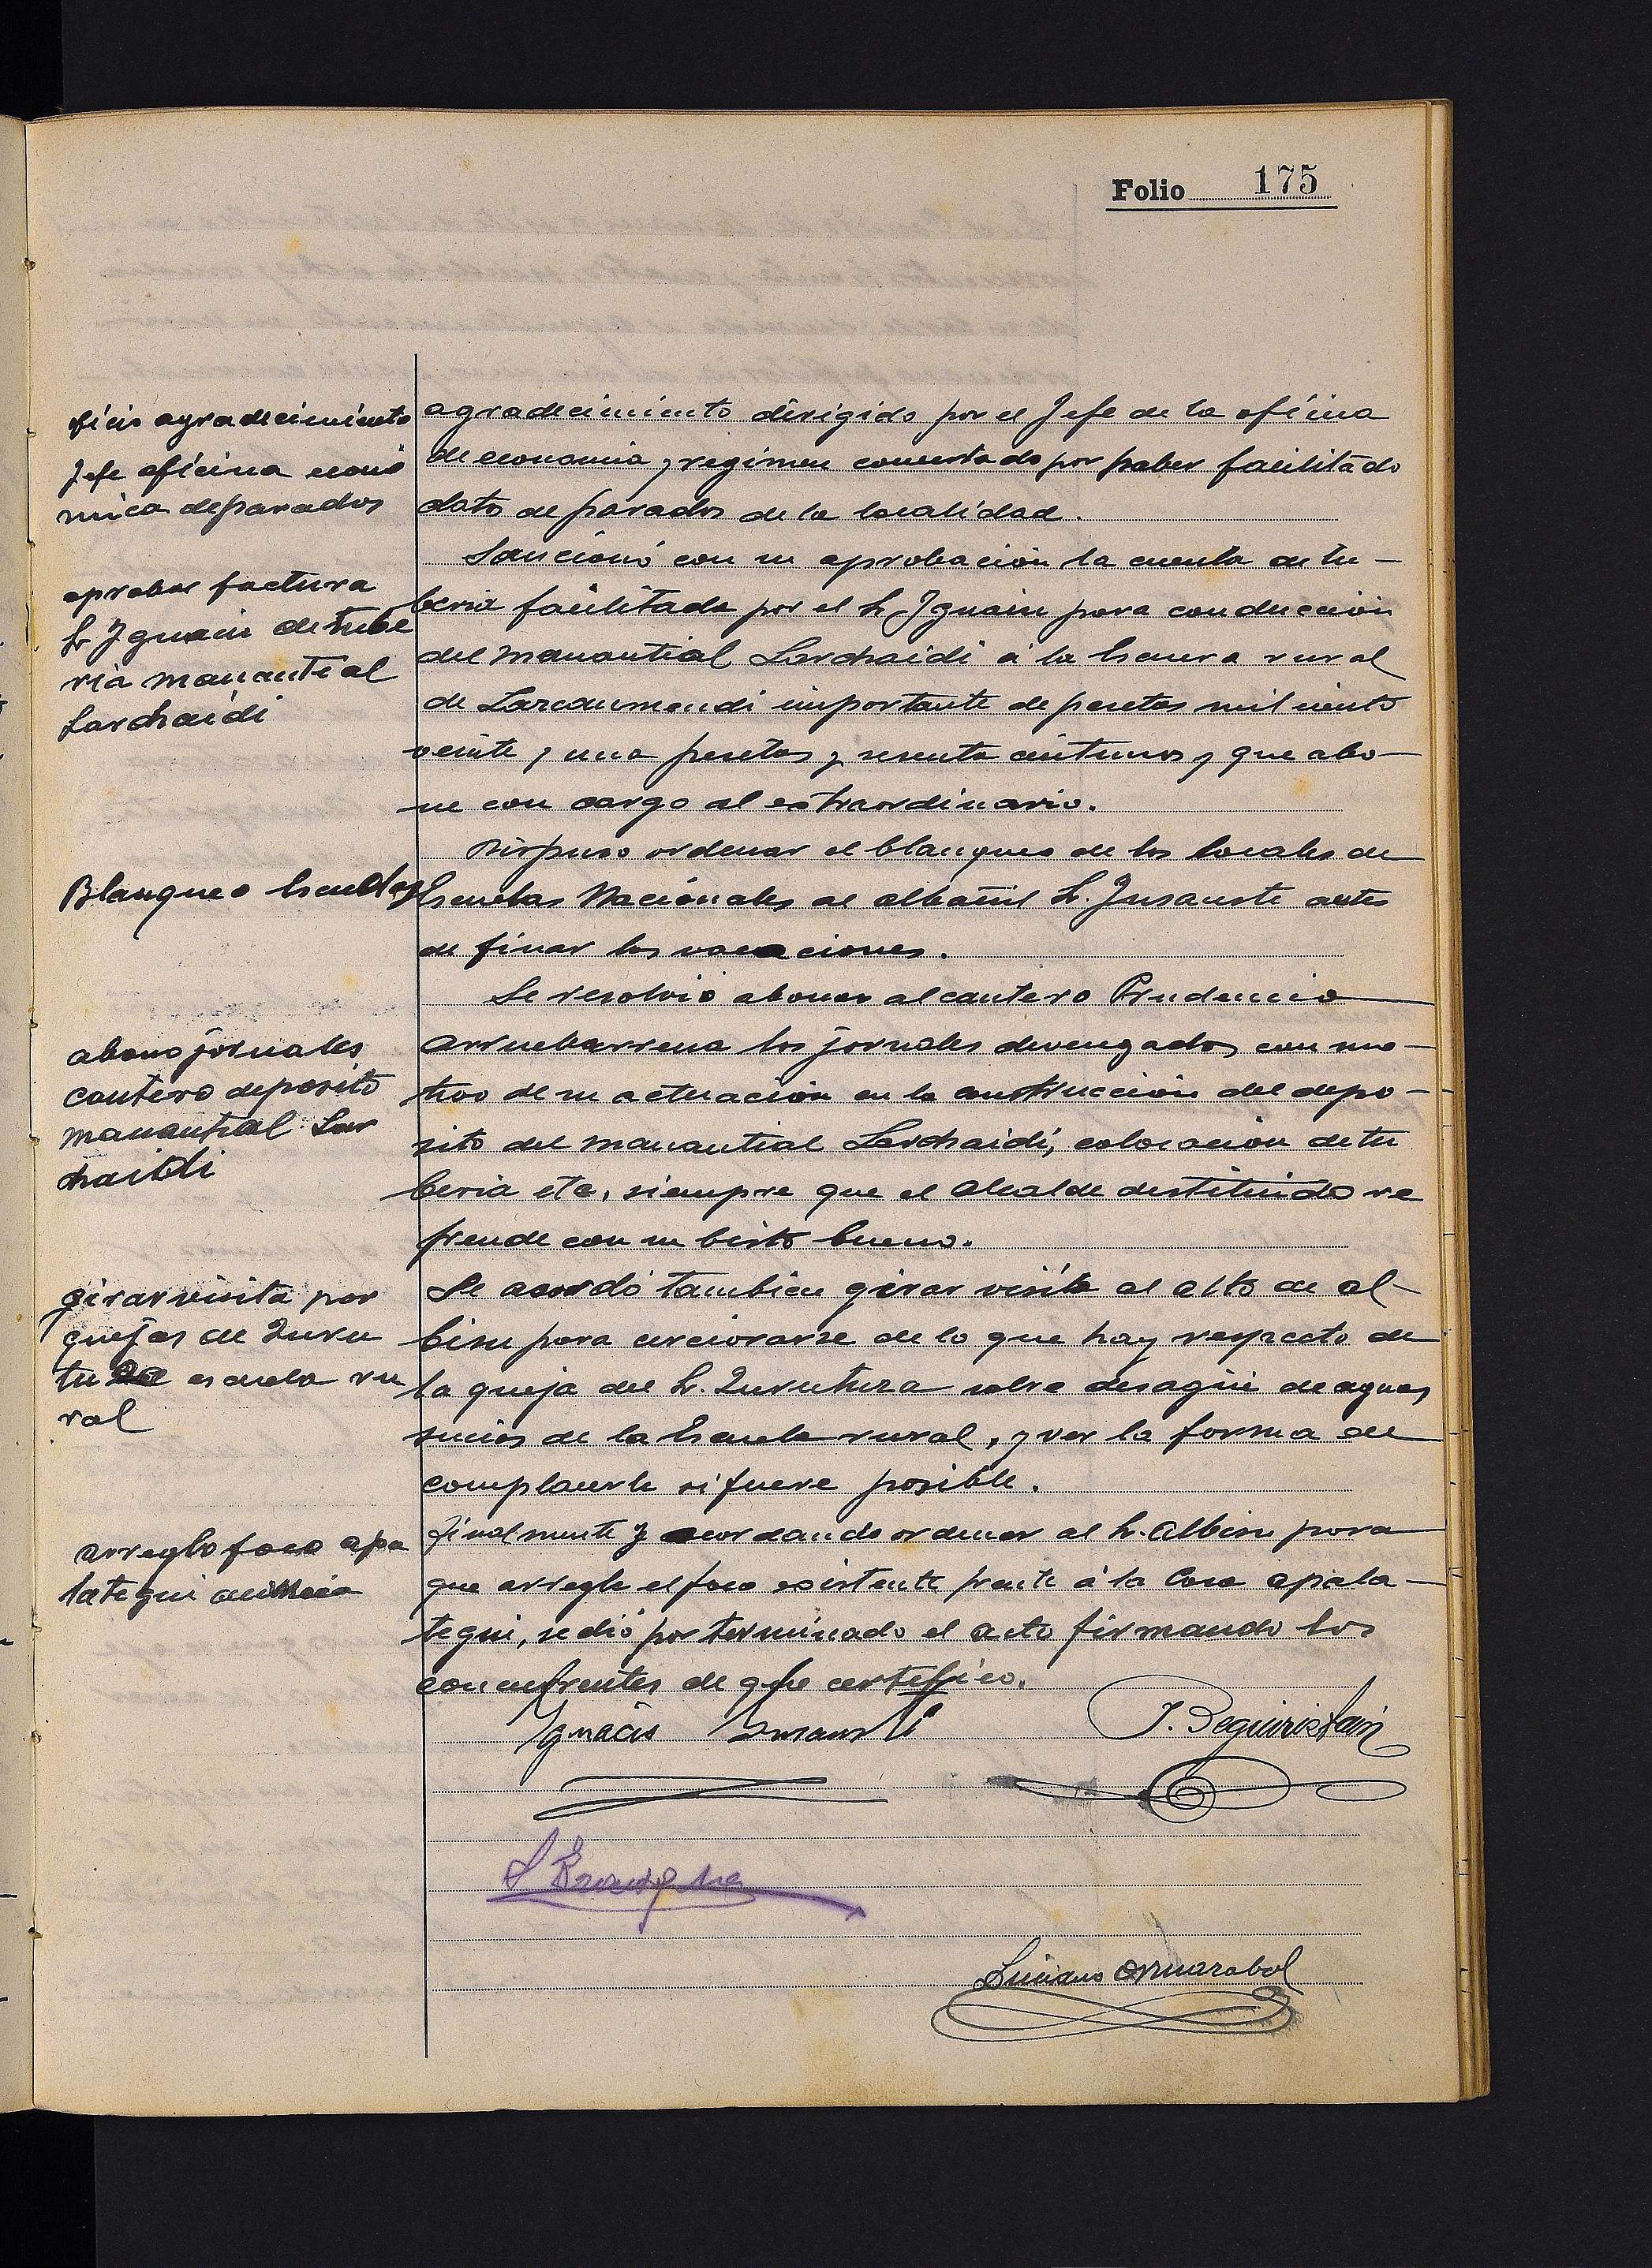 Folio 175
oficio agradecimiento
Jefe oficina econó
mica de parados
agradecimiento dirigido por el Jefe de la oficina
de economia y regimen concertado por haber facilitado
datos de parados de la localidad.
Sancionó con su aprobación la cuenta de tu-
beria facilitada por el Sr. Iguain para conducción
del manantial Larchaidi á la Escuera rural
de Larcaumendi importante de pesetas mil ciento
veinte y una pesetas y sesenta centimos y que abo-
ne con cargo al extraordinario.
aprobar factura
Sr Iguain de tube
ria manantial
Larchaidi
Dispuso ordenar el blanqueo de los locales de
Escuelas Nacionales al albañil Sr. Insausti antes
de finar las vacaciones.
Blanqueo Escuelas
Se resolvió abonar al cantero Prudencio
Arruebarrena los jornales devengados con mo-
tivo de su actuación en la construcción del depo-
sito del manantial Larchaidi, colocación de tu
beria etc, siempre que el Alcalde destituido re
frende con su bisto bueno.
abono jornales
cantero deposito
manantial Lar
chaidi
Se acordó tambien girar visita al alto de Al-
bisu para cerciorarse de lo que hay respecto de
la queja del Sr. Zurutuza sobre desagüe de aguas
sucias de la Escuela rural, y ver la forma de
complacerle si fuere posible.
girar visita por
quejas de Zuru
tuza escuela ru
ral
Finalmente y acordando ordenar al Sr. Albisu para
que arregle el foco existente frente á la Casa Apala-
tegui, se dió por terminado el acto firmando los
concurrentes de que certifico.
arreglo foco Apa
lategui
Ignacio Insausti
J. Beguiristain
Luciano Ormazabal